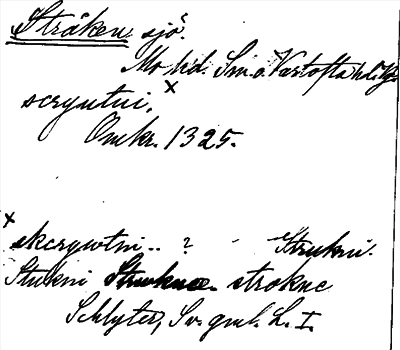 Stråken sjö.
Mo hd. Sm. o. Vartofta hd. Vg.
scryutni, x
Omkr. 1325.
x
skcrywtni .. ? Strukni.
Stukni strokne
Schlyter, Sv. gml. L. I.